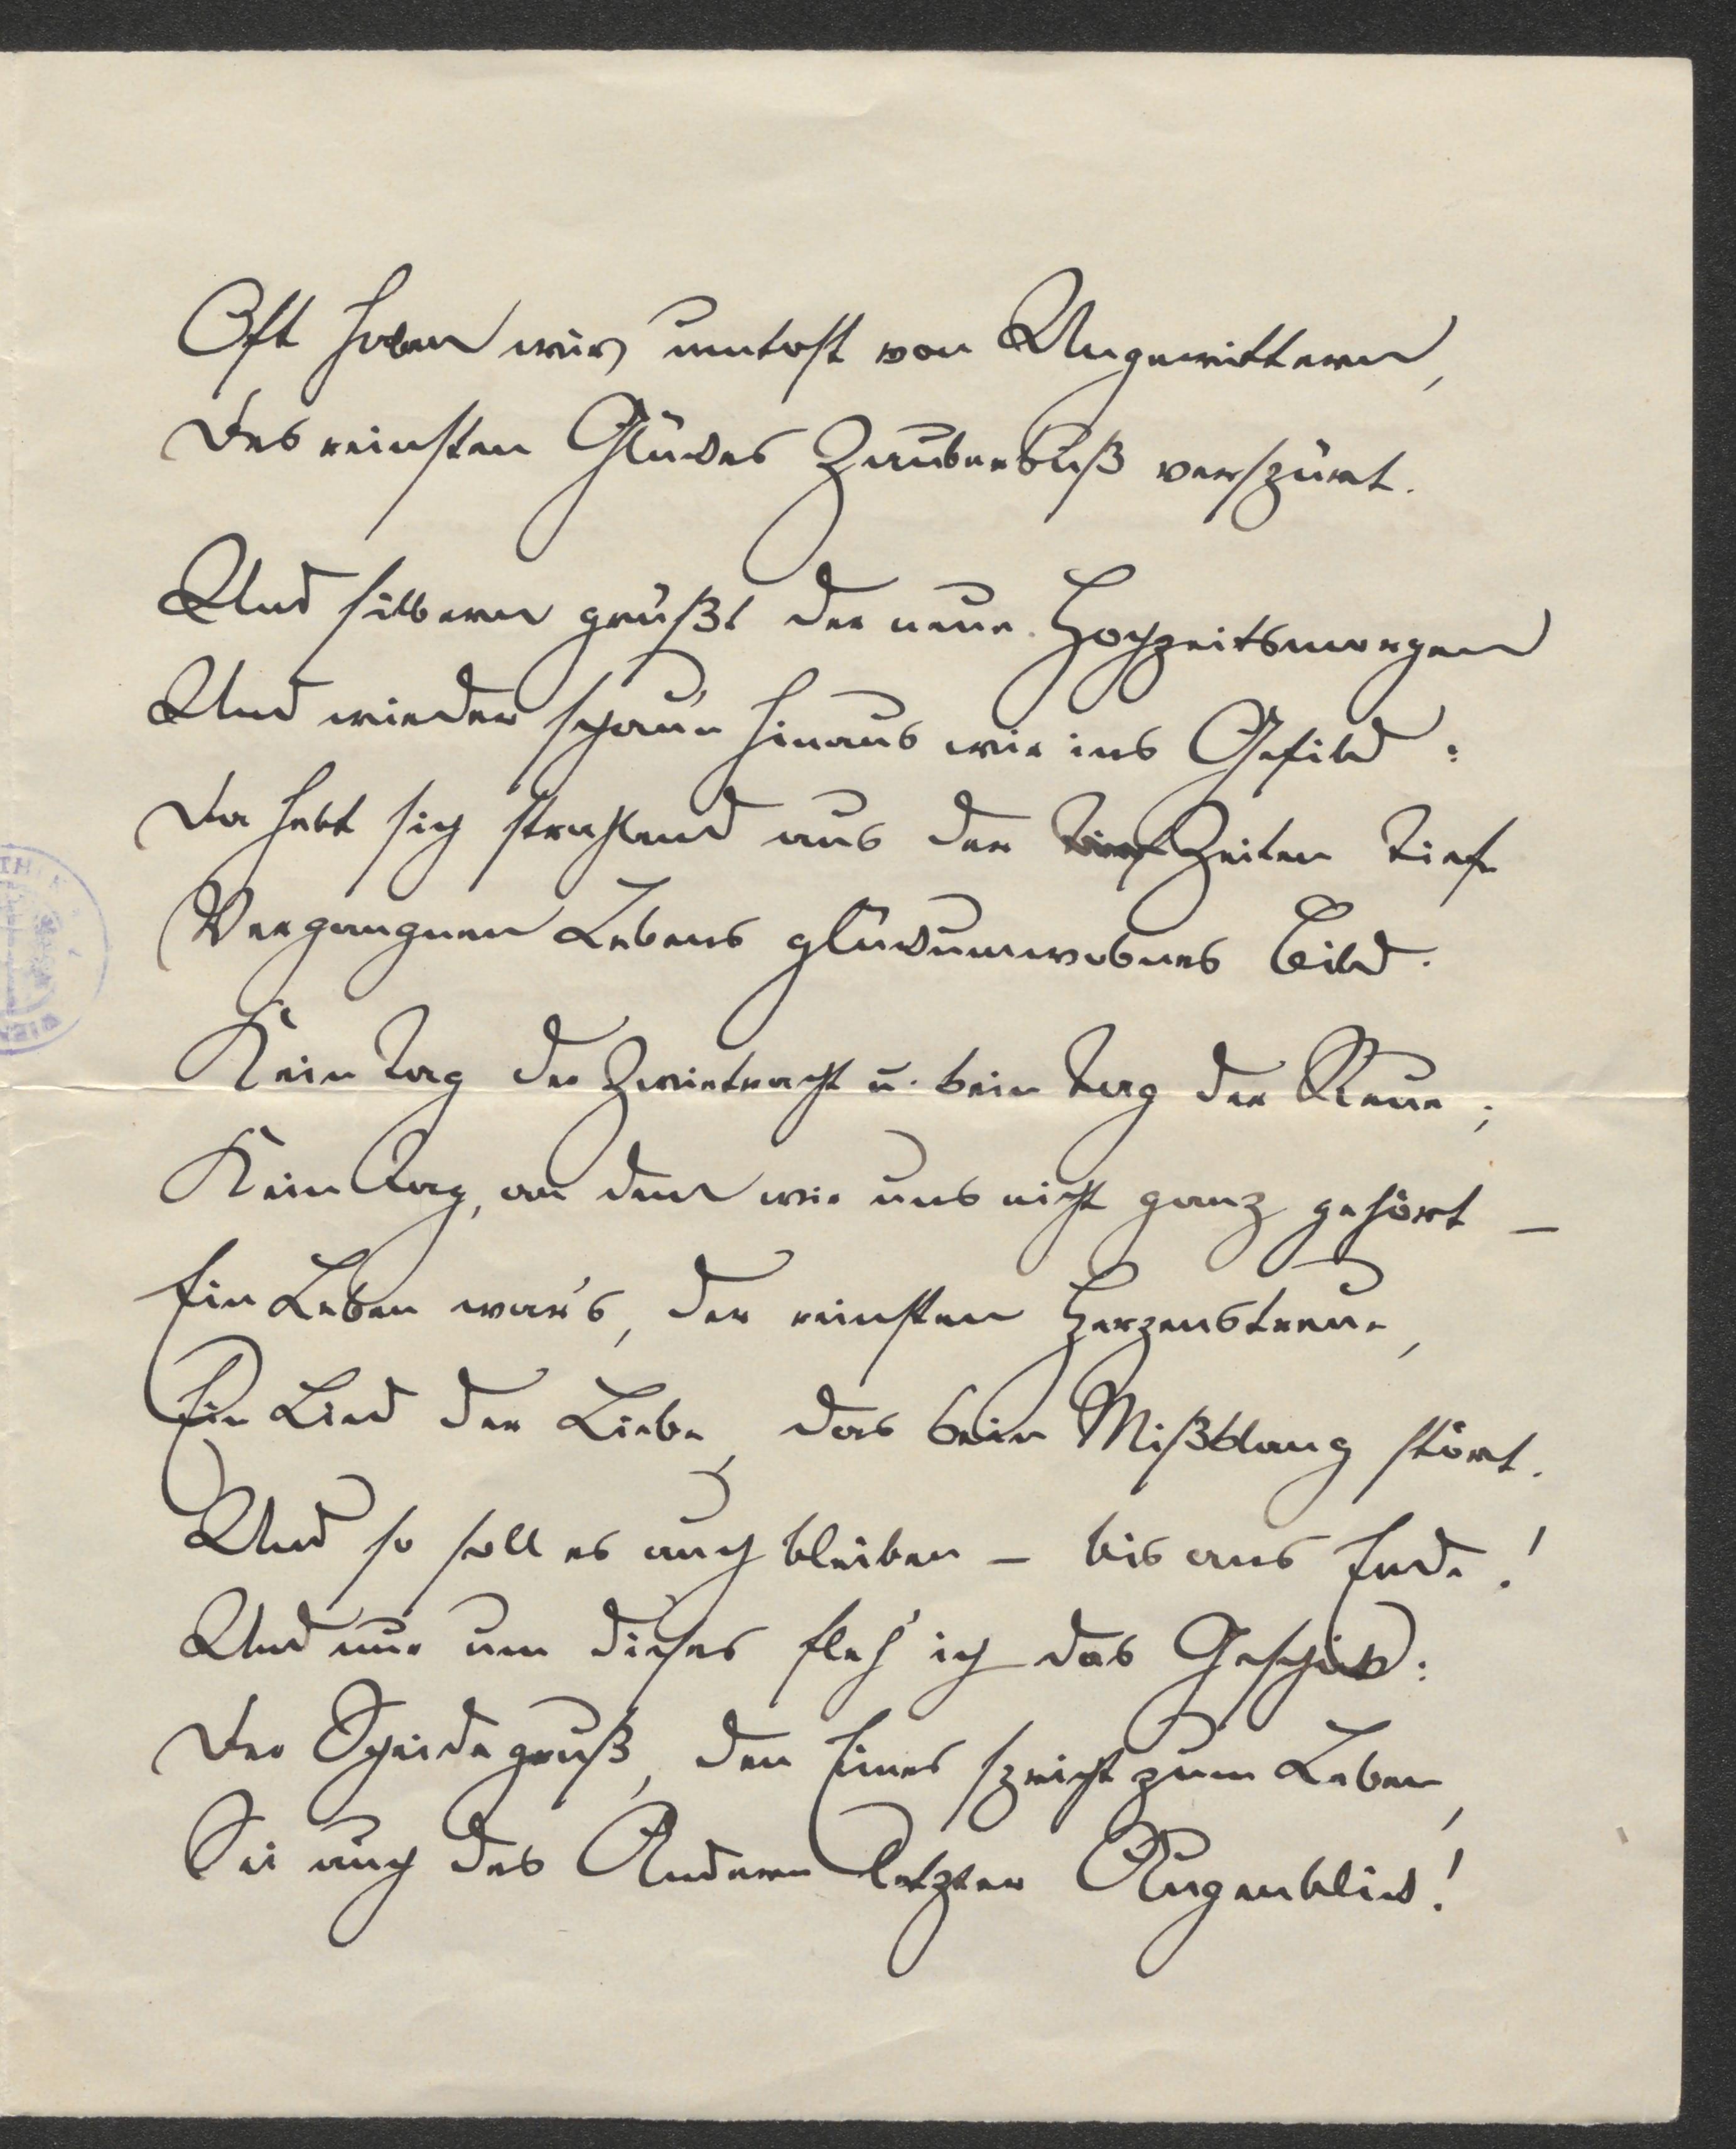 Oft haben wir, umtost von Ungewittern,
Des reinsten Glückes Zauberkuß verspürt.
Und silbern grüßt der neue Hochzeitsmorgen
Und wieder schau'n hinaus wir ins Gefild:
Da hebt sich strahlend aus der Zeiten Tiefe
Vergangnen Lebens glückumwobnes Bild.
Kein Tag der Zwietracht u. kein Tag der Reue;
Kein Tag, an dem wir uns nicht ganz gehört –
Ein Leben war's, der reinsten Herzenstreue,
Ein Lied der Liebe, das kein Mißklang stört.
Und so soll es auch bleiben – bis ans Ende!
Und nur um dieses fleh' ich das Geschick:
Der Scheidegruß, den Eines spricht zum Leben,
Sei auch des Andern letzter Augenblick!